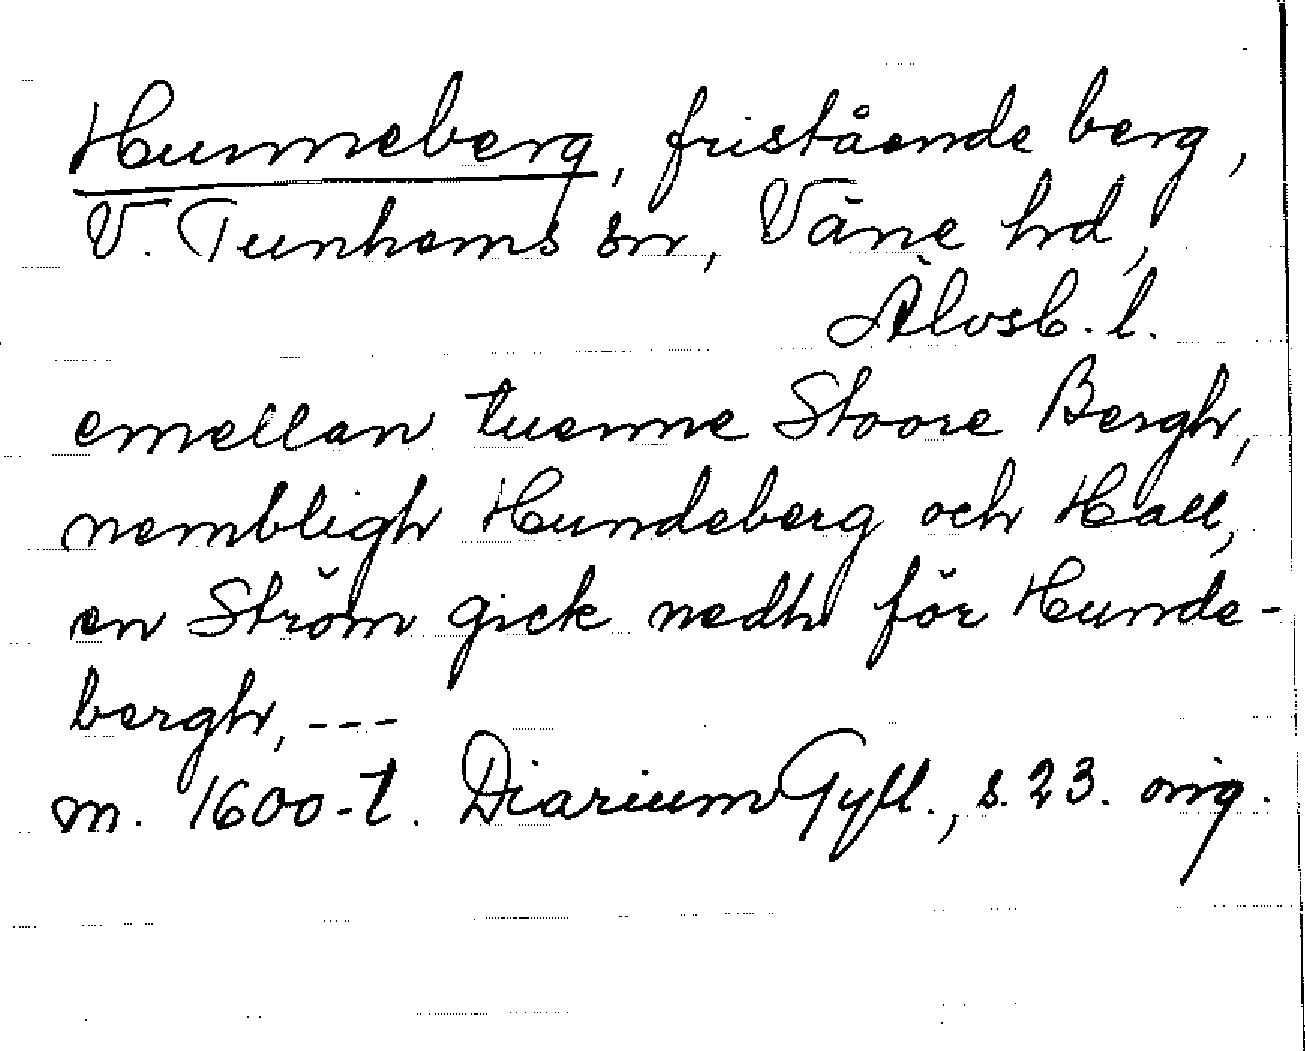 Hunneberg, fristående berg,
V. Tunhems sn, Väne hd,
Älvsb. l.
emellan tuenne Stoore Bergh,
nembligh Hundeberg och Hall,
en Ström gick nedh för Hunde-
bergh, ---
m. 1600-t. Diarium Gyll., s. 23. orig.